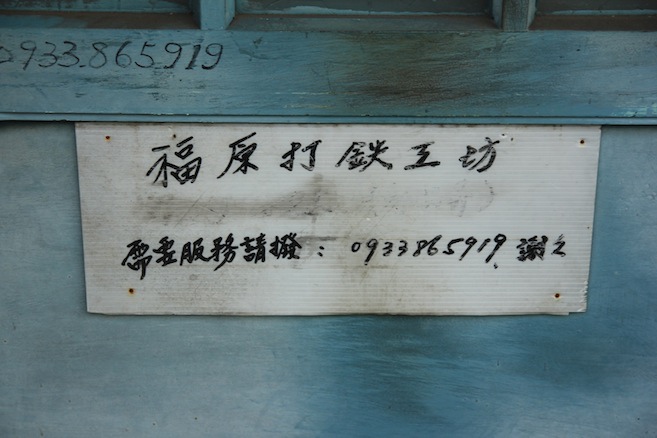 0933.865919
福原打鉄工坊
需要服務請撥：0933865919 謝々